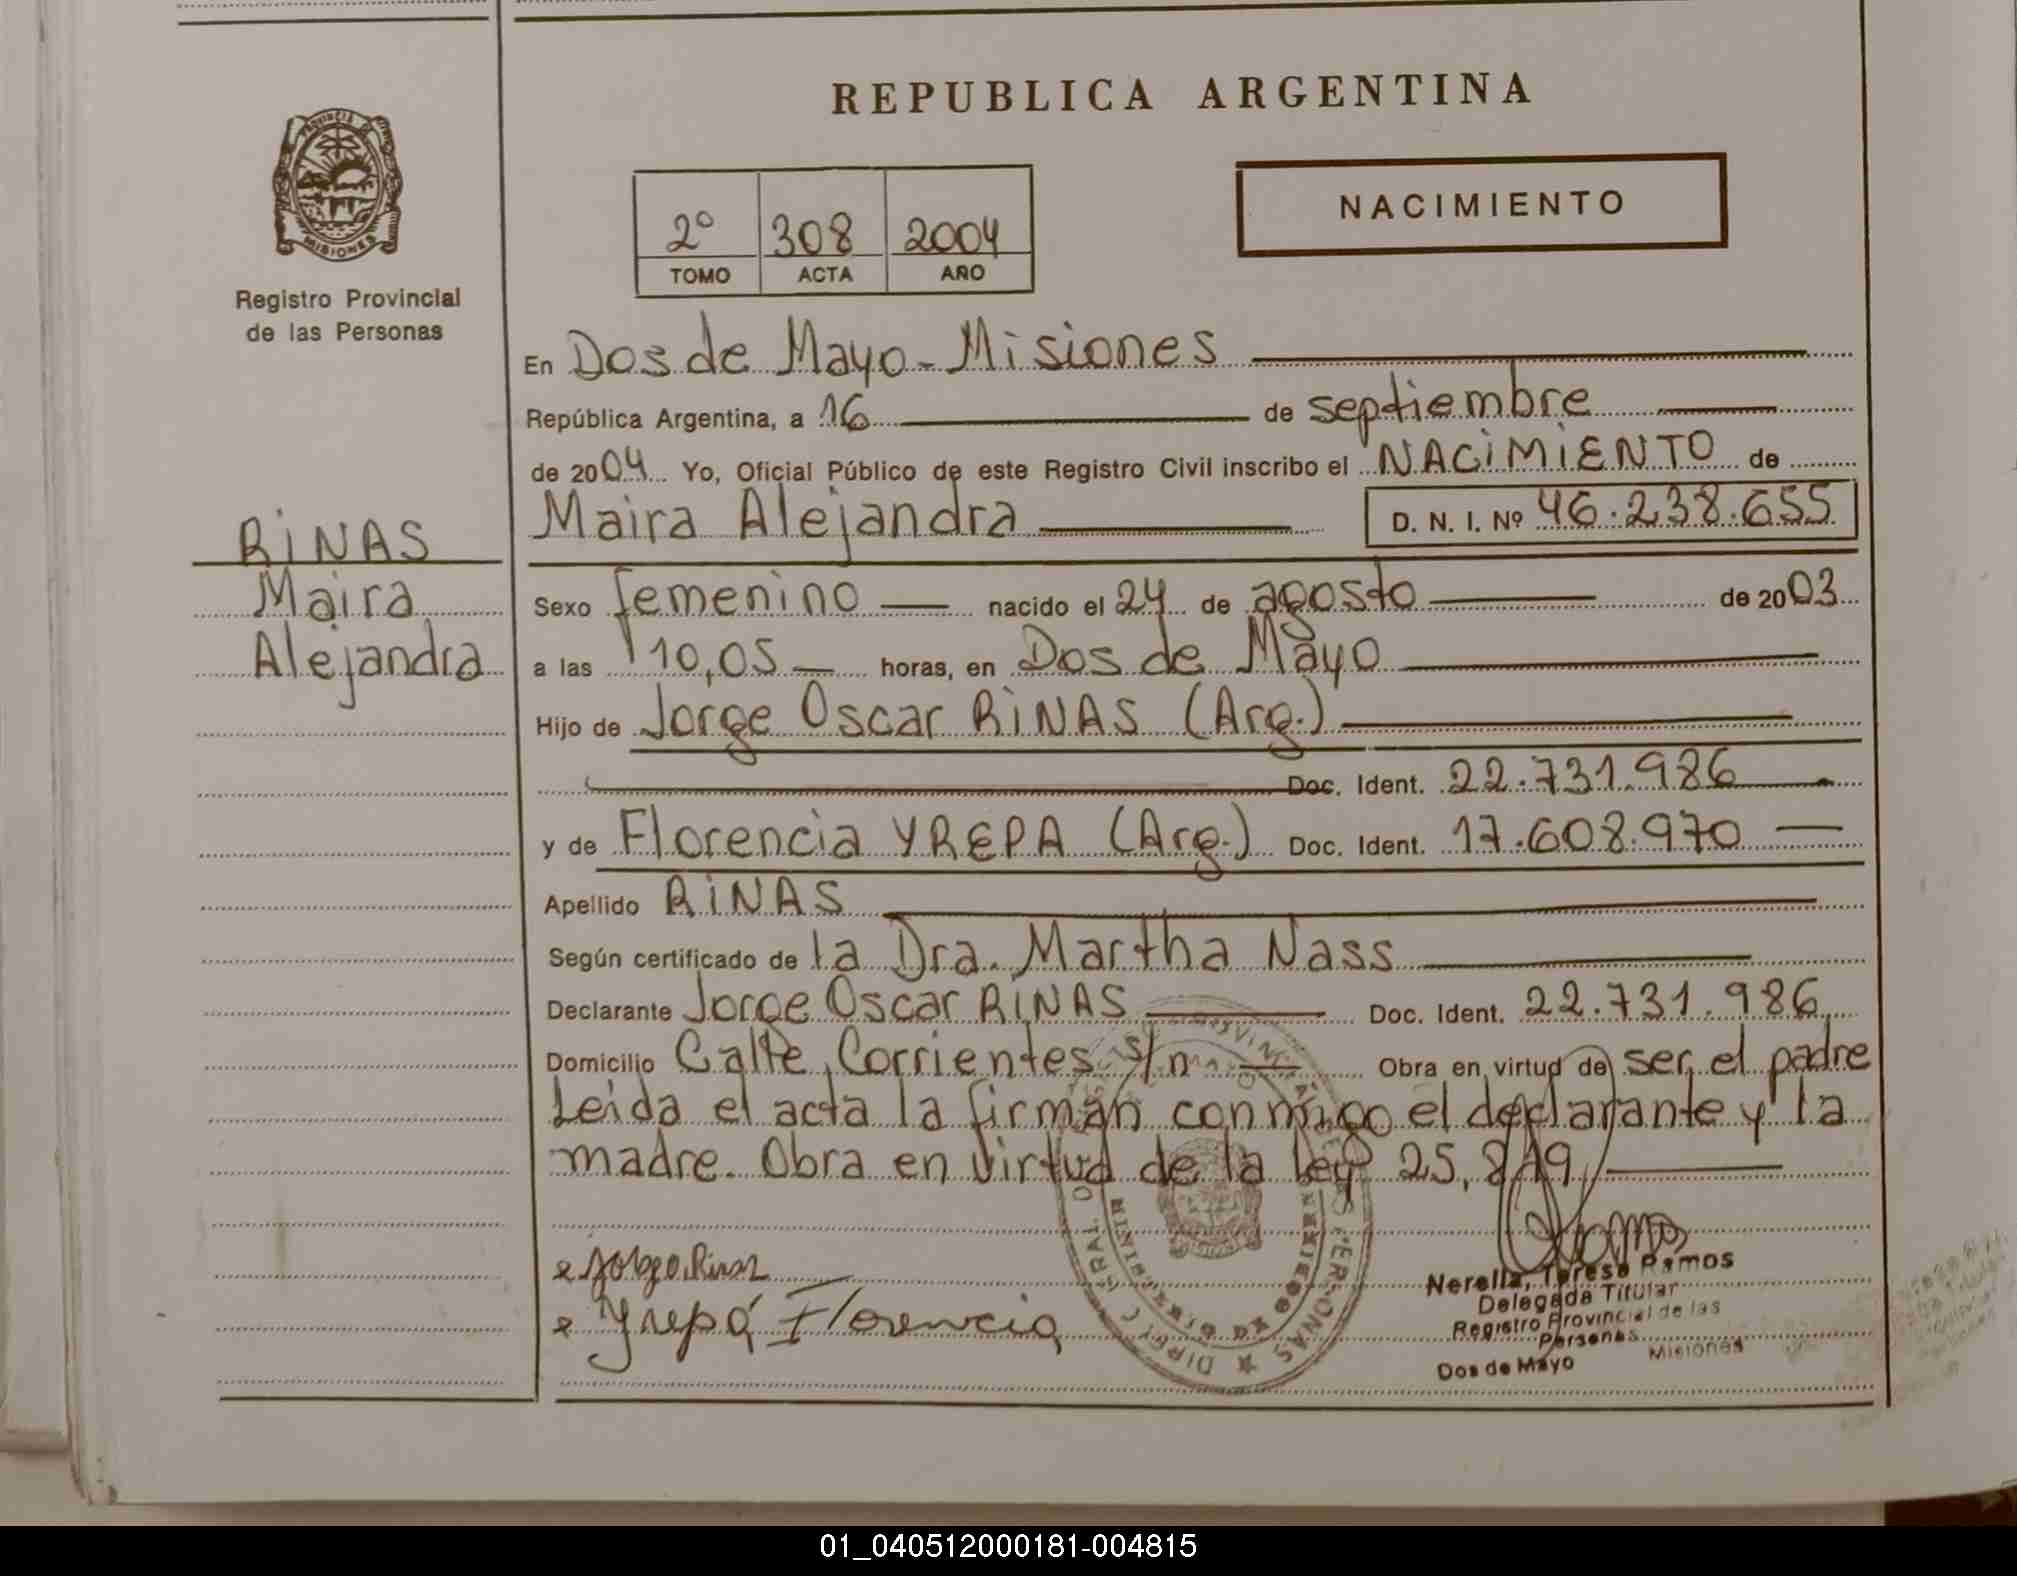 REPUBLICA ARGENTINA
PROVINCIA DE
MISIONES
Registro Provincial
de las Personas
2º 308 2004
TOMO ACTA AÑO
NACIMIENTO
En Dos de Mayo - Misiones
República Argentina, a 16 de septiembre
de 2004 Yo, Oficial Público de este Registro Civil inscribo el NACIMIENTO de
Maira Alejandra D. N. I. Nº 46.238.655
RINAS
Maira
Alejandra
Sexo femenino nacido el 24 de agosto de 2003
a las 10,05 horas, en Dos de Mayo
Hijo de Jorge Oscar RINAS (Arg.)
Doc. Ident. 22.731.986
y de Florencia YREPA (Arg.) Doc. Ident. 17.608.970
Apellido RINAS
Según certificado de la Dra. Martha Nass
Declarante Jorge Oscar RINAS Doc. Ident. 22.731.986
Domicilio Calle Corrientes s/n Obra en virtud de ser el padre
Leida el acta la firman conmigo el declarante y la
madre. Obra en virtud de la ley 25.819
Jorge Rinas
Yrepá Florencia
Nerella, Teresa Ramos
Delegada Titular
Registro Provincial de las
Personas
Dos de Mayo Misiones
01_040512000181-004815